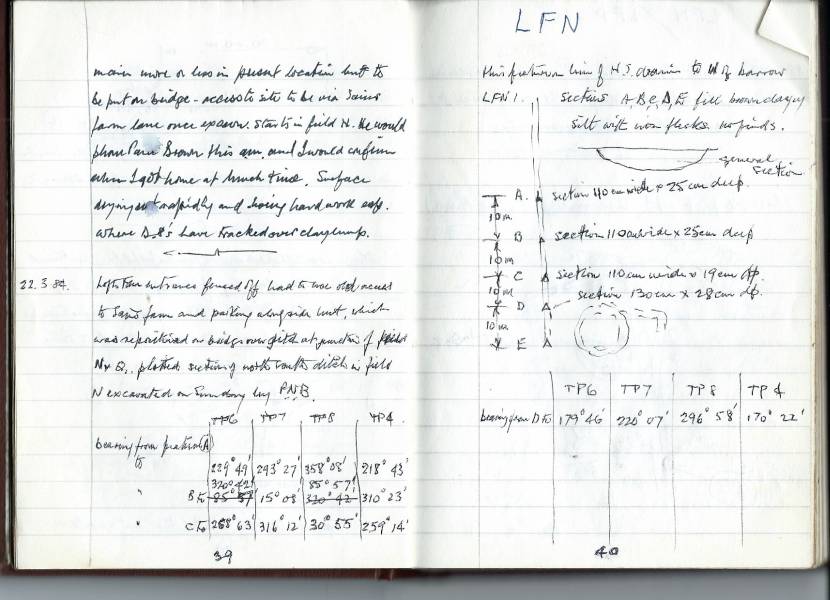 main more or less in present location but to
be put on bridge - access to site to be via Sains
farm lane once excavn. starts in field N. He would
phone Paul Brown this am. and I would confirm
when I got home at lunch time. Surface
drying out rapidly and being hard work esp.
where D.8's have tracked over clay lump.
22.3.84. Lofts Fen entrance fenced off had to use old access
to Sains farm and parking alongside hut, which
was repositioned on bridge over ditch at junction of field
N & Q. plotted sections of north south ditch in field
N excavated on Sunday by PNB.
TP6 TP7 TP8 TP4
bearing from A
to 229° 49' 293° 27' 358° 08' 218° 43'
320° 42' 85° 57'
" B to 85° 57' 15° 08' 320° 42' 310° 23'
" C to 268° 63' 316° 12' 30° 55' 259° 14'
39
LFN
this feature on line of N.S. drain to W of barrow
LFN 1. sections A, B, C, D, E fill brown clayey
silt with iron flecks. no finds.
general
section
A. section 110 cm wide x 25 cm deep.
10m
B section 110 cm wide x 25 cm deep
10m
C section 110 cm wide x 19 cm dp.
10m
D section 130 cm x 28 cm dp.
10m
E
TP6 TP7 TP8 TP4
bearing from D to 179° 46' 220° 07' 296° 58' 170° 22'
40